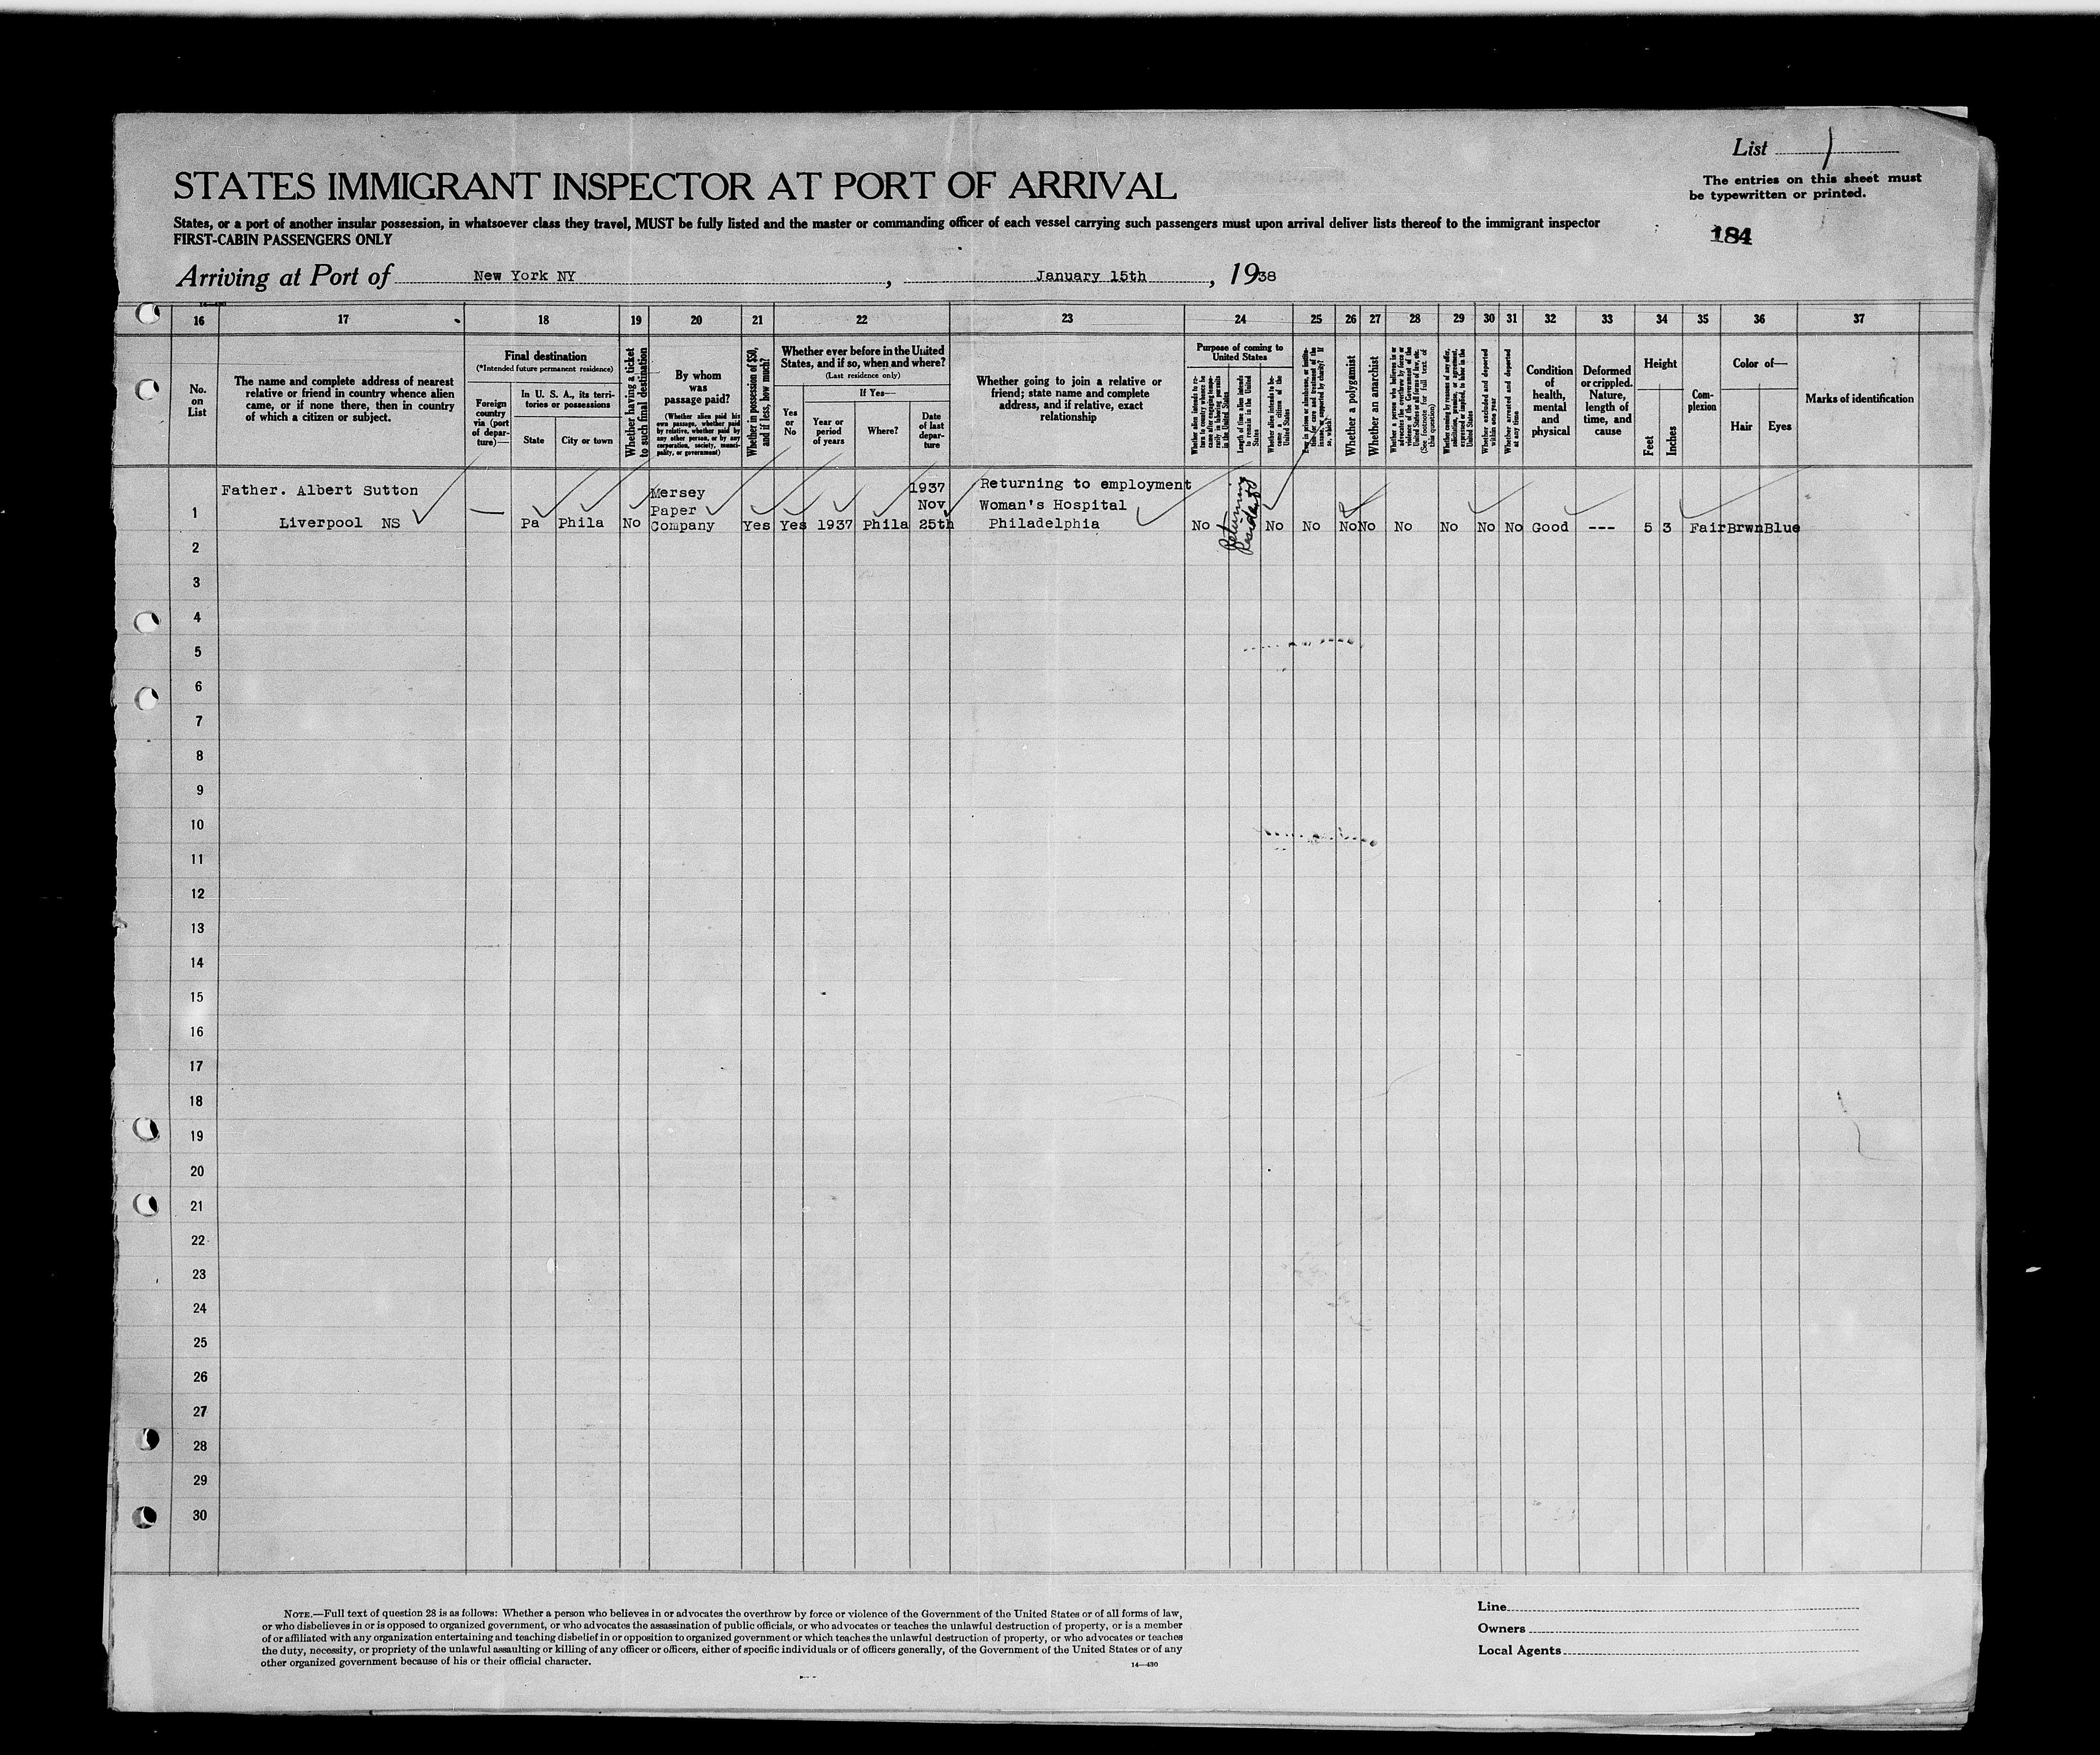 List 1
STATES IMMIGRANT INSPECTOR AT PORT OF ARRIVAL
The entries on this sheet must
be typewritten or printed.
States, or a port of another insular possession, in whatsoever class they travel, MUST be fully listed and the master or commanding officer of each vessel carrying such passengers must upon arrival deliver lists thereof to the immigrant inspector
FIRST-CABIN PASSENGERS ONLY
184
Arriving at Port of New York NY, January 15th, 1938
16 17 18 19 20 21 22 23 24 25 26 27 28 29 30 31 32 33 34 35 36 37
No.
on
List
The name and complete address of nearest
relative or friend in country whence alien
came, or if none there, then in country
of which a citizen or subject.
Final destination
(*Intended future permanent residence)
Foreign
country
via (port
of depar-
ture)—
In U. S. A., its terri-
tories or possessions
State
City or town
Whether having a ticket
to such final destination
By whom
was
passage paid?
(Whether alien paid his
own passage, whether paid
by relative, whether paid by
any other person, or by any
corporation, society, munici-
pality, or government)
Whether in possession of $50,
and if less, how much?
Whether ever before in the United
States, and if so, when and where?
(Last residence only)
Yes
or
No
If Yes—
Year or
period
of years
Where?
Date
of last
depar-
ture
Whether going to join a relative or
friend; state name and complete
address, and if relative, exact
relationship
Purpose of coming to
United States
Whether alien intends to re-
turn to country whence he
came after engaging tempo-
rarily in laboring pursuits
in the United States
Length of time alien intends
to remain in the United
States
Whether alien intends to be-
come a citizen of the
United States
Whether a polygamist
Whether an anarchist
Whether a person who believes in or
advocates the overthrow by force or
violence of the Government of the
United States or all forms of law, etc.
(See footnote for full text of
this question)
Whether coming by reason of any offer,
solicitation, promise, or agreement,
expressed or implied, to labor in the
United States
Whether excluded and deported
within one year
Whether arrested and deported
at any time
Condition
of
health,
mental
and
physical
Deformed
or crippled.
Nature,
length of
time, and
cause
Height
Feet
Inches
Com-
plexion
Color of—
Hair
Eyes
Marks of identification
Father. Albert Sutton
Liverpool NS
—
Pa
Phila
No
Mersey
Paper
Company
Yes
Yes
1937
Phila
1937
Nov
25th
Returning to employment
Woman's Hospital
Philadelphia
No
Returning
Resident
No No No No No No No No Good --- 5 3 Fair Brwn Blue
1
2
3
4
5
6
7
8
9
10
11
12
13
14
15
16
17
18
19
20
21
22
23
24
25
26
27
28
29
30
NOTE.—Full text of question 28 is as follows: Whether a person who believes in or advocates the overthrow by force or violence of the Government of the United States or of all forms of law,
or who disbelieves in or is opposed to organized government, or who advocates the assassination of public officials, or who advocates or teaches the unlawful destruction of property, or is a member
of or affiliated with any organization entertaining and teaching disbelief in or opposition to organized government or which teaches the unlawful destruction of property, or who advocates or teaches
the duty, necessity, or propriety of the unlawful assaulting or killing of any officer or officers, either of specific individuals or of officers generally, of the Government of the United States or of any
other organized government because of his or their official character.
14—430
Line
Owners
Local Agents